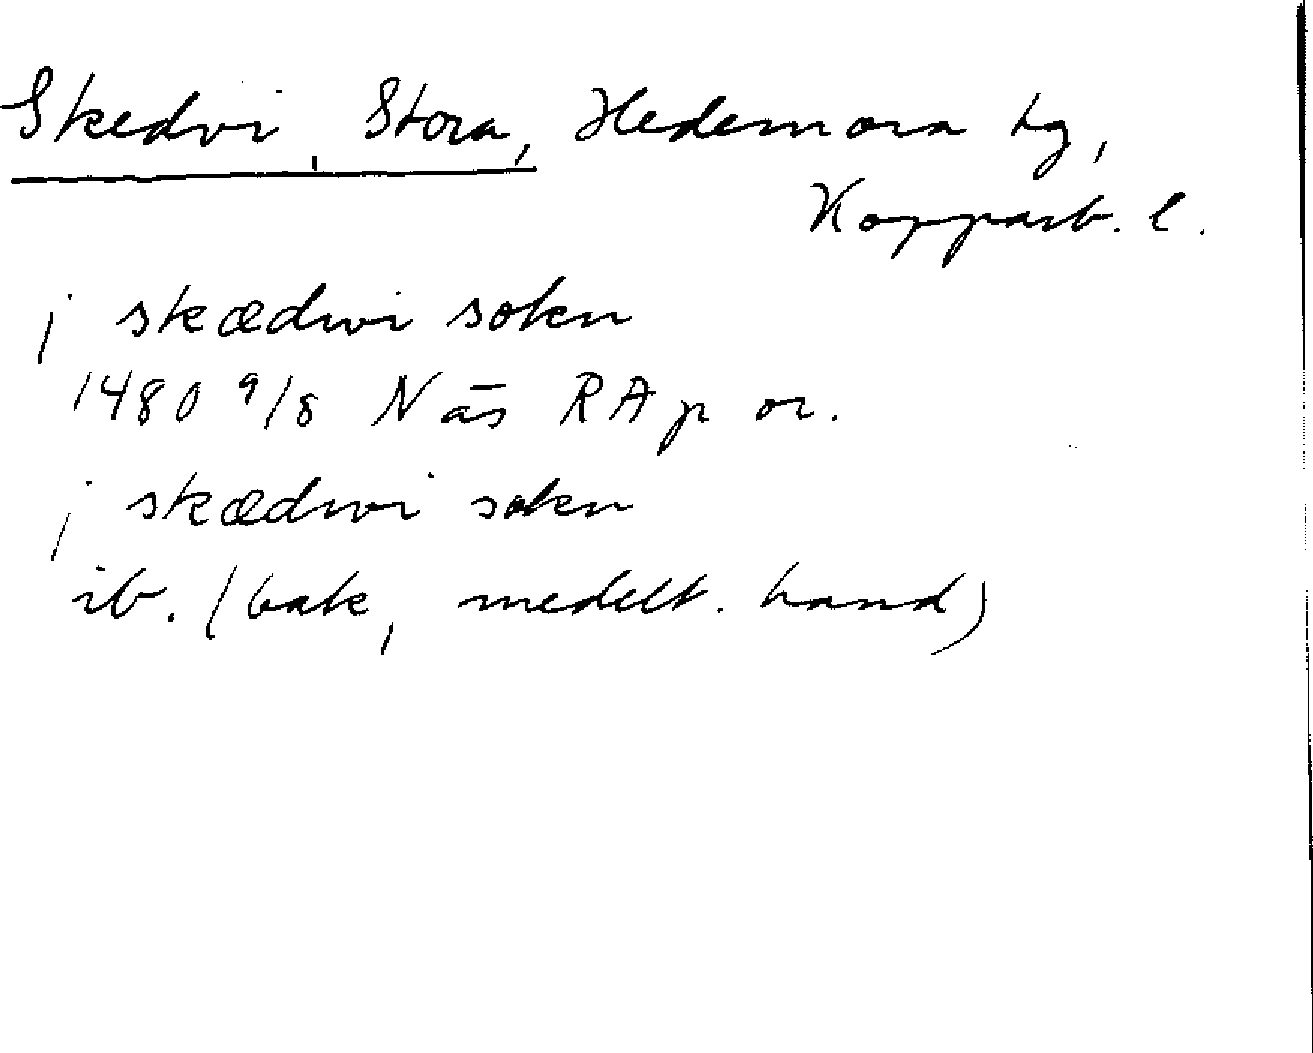 Skedvi, Stora, Hedemora tg,
Kopparb. l.
j skædwi sokn
1480 9/8 Näs RAp or.
j skædwi sokn
ib. (bak, medelt. hand)